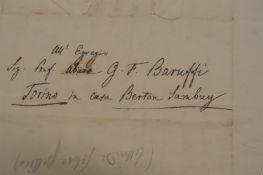 All' Egregio
Sig. Prof. Abate G. F. Baruffi
Torino in casa Berton Sambuy